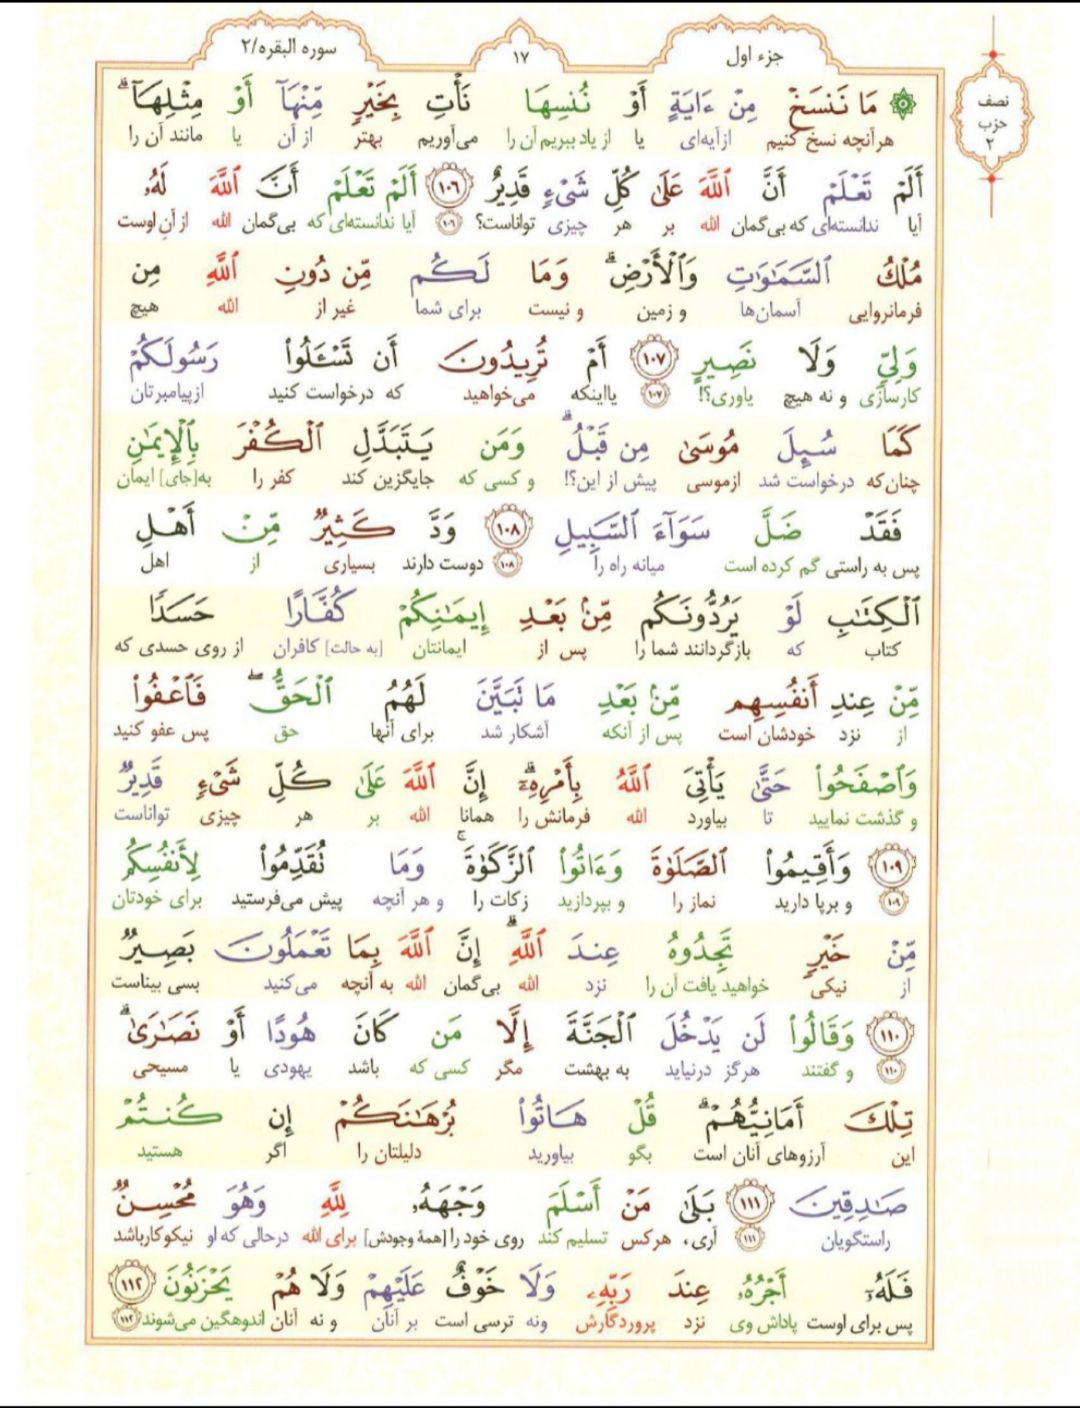 جزء اول
۱۷
سوره البقره/۲
نصف
حزب
۲
۞ مَا نَنسَخْ مِنْ ءَايَةٍ أَوْ نُنسِهَا نَأْتِ بِخَيْرٍ مِّنْهَآ أَوْ مِثْلِهَآ ۗ
هرآنچه نسخ کنیم ازآیه‌ای یا از یاد ببریم آن را می‌آوریم بهتر از آن یا مانند آن را
أَلَمْ تَعْلَمْ أَنَّ ٱللَّهَ عَلَىٰ كُلِّ شَىْءٍ قَدِيرٌ ١٠٦ أَلَمْ تَعْلَمْ أَنَّ ٱللَّهَ لَهُۥ
آیا ندانسته‌ای که بی‌گمان الله بر هر چیزی تواناست؟ ۱۰۶ آیا ندانسته‌ای که بی‌گمان الله از آنِ اوست
مُلْكُ ٱلسَّمَٰوَٰتِ وَٱلْأَرْضِ ۗ وَمَا لَكُم مِّن دُونِ ٱللَّهِ مِن
فرمانروایی آسمان‌ها و زمین و نیست برای شما غیر از الله هیچ
وَلِىٍّ وَلَا نَصِيرٍ ١٠٧ أَمْ تُرِيدُونَ أَن تَسْـَٔلُوا۟ رَسُولَكُمْ
کارسازی و نه هیچ یاوری؟! ۱۰۷ یااینکه می‌خواهید که درخواست کنید ازپیامبرتان
كَمَا سُئِلَ مُوسَىٰ مِن قَبْلُ ۗ وَمَن يَتَبَدَّلِ ٱلْكُفْرَ بِٱلْإِيمَٰنِ
چنان‌که درخواست شد ازموسی پیش از این؟! و کسی که جایگزین کند کفر را به[جای] ایمان
فَقَدْ ضَلَّ سَوَآءَ ٱلسَّبِيلِ ١٠٨ وَدَّ كَثِيرٌ مِّنْ أَهْلِ
پس به راستی گم کرده است میانه راه را ۱۰۸ دوست دارند بسیاری از اهل
ٱلْكِتَٰبِ لَوْ يَرُدُّونَكُم مِّنۢ بَعْدِ إِيمَٰنِكُمْ كُفَّارًا حَسَدًا
کتاب که بازگردانند شما را پس از ایمانتان [به حالت] کافران از روی حسدی که
مِّنْ عِندِ أَنفُسِهِم مِّنۢ بَعْدِ مَا تَبَيَّنَ لَهُمُ ٱلْحَقُّ ۖ فَٱعْفُوا۟
از نزد خودشان است پس از آنکه آشکار شد برای آنها حق پس عفو کنید
وَٱصْفَحُوا۟ حَتَّىٰ يَأْتِىَ ٱللَّهُ بِأَمْرِهِۦٓ ۗ إِنَّ ٱللَّهَ عَلَىٰ كُلِّ شَىْءٍ قَدِيرٌ
و گذشت نمایید تا بیاورد الله فرمانش را همانا الله بر هر چیزی تواناست
١٠٩ وَأَقِيمُوا۟ ٱلصَّلَوٰةَ وَءَاتُوا۟ ٱلزَّكَوٰةَ ۚ وَمَا تُقَدِّمُوا۟ لِأَنفُسِكُم
۱۰۹ و برپا دارید نماز را و بپردازید زکات را و هر آنچه پیش می‌فرستید برای خودتان
مِّنْ خَيْرٍ تَجِدُوهُ عِندَ ٱللَّهِ ۗ إِنَّ ٱللَّهَ بِمَا تَعْمَلُونَ بَصِيرٌ
از نیکی خواهید یافت آن را نزد الله بی‌گمان الله به آنچه می‌کنید بسی بیناست
١١٠ وَقَالُوا۟ لَن يَدْخُلَ ٱلْجَنَّةَ إِلَّا مَن كَانَ هُودًا أَوْ نَصَٰرَىٰ ۗ
۱۱۰ و گفتند هرگز درنیاید به بهشت مگر کسی که باشد یهودی یا مسیحی
تِلْكَ أَمَانِيُّهُمْ ۗ قُلْ هَاتُوا۟ بُرْهَٰنَكُمْ إِن كُنتُمْ
این آرزوهای آنان است بگو بیاورید دلیلتان را اگر هستید
صَٰدِقِينَ ١١١ بَلَىٰ مَنْ أَسْلَمَ وَجْهَهُۥ لِلَّهِ وَهُوَ مُحْسِنٌ
راستگویان ۱۱۱ آری، هرکس تسلیم کند روی خود را [همهٔ وجودش] برای الله درحالی که او نیکوکارباشد
فَلَهُۥٓ أَجْرُهُۥ عِندَ رَبِّهِۦ وَلَا خَوْفٌ عَلَيْهِمْ وَلَا هُمْ يَحْزَنُونَ ١١٢
پس برای اوست پاداش وی نزد پروردگارش ونه ترسی است بر آنان و نه آنان اندوهگین می‌شوند ۱۱۲